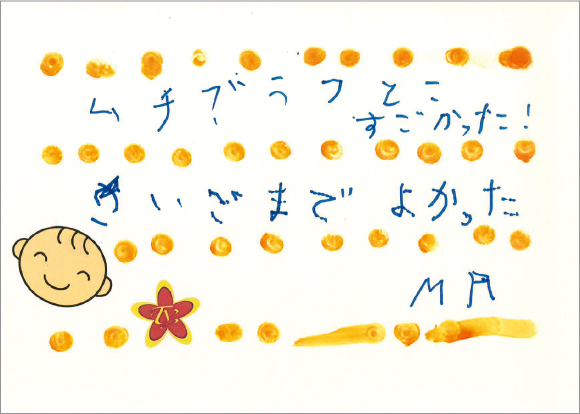 ムチでうつとこ
すごかった!
さいごまで よかった
M A